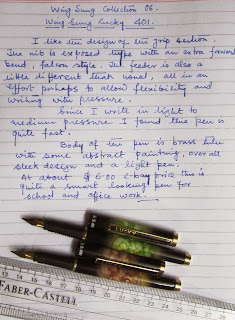 Wing Sung Collection 06.
Wing Sung Lucky 401.
I like the design of the grip section.
The nib is exposed type with an extra forward
bend, falcon style. The feeder is also a
little different than usual, all in an
effort perhaps to allow flexibility and
writing with pressure.
Since I write in light to
medium pressure I found this pen is
quite fast.
Body of the pen is brass tube
with some abstract painting, over all
sleek design and a light pen.
At about $ 6.00 e-bay price this is
quite a smart looking pen for
school and office work.
LUCKY
FABER-CASTELL